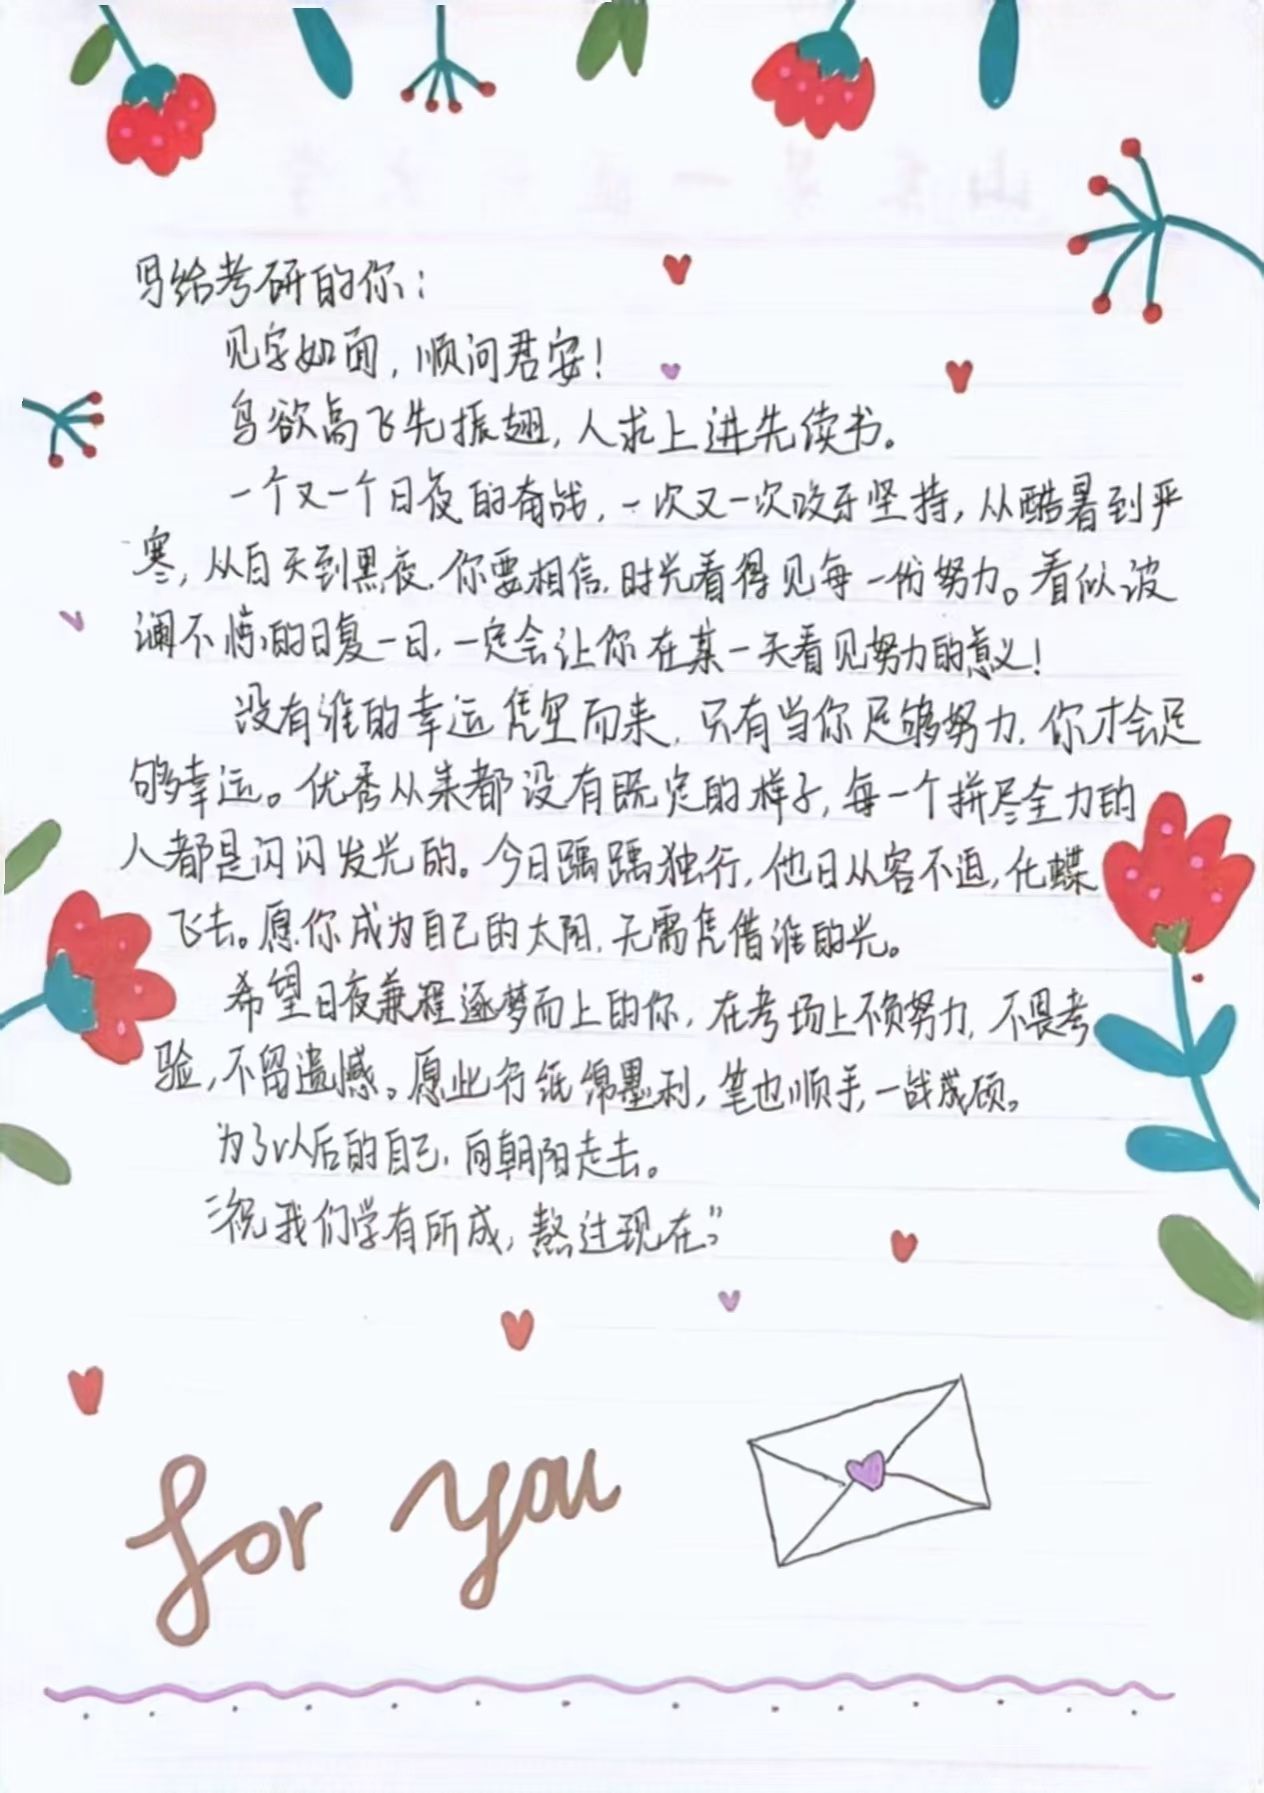 写给考研的你：
见字如面，顺问君安！
鸟欲高飞先振翅，人求上进先读书。
一个又一个日夜的奋战，一次又一次咬牙坚持，从酷暑到严
寒，从白天到黑夜，你要相信，时光看得见每一份努力。看似波
澜不惊的日复一日，一定会让你在某一天看见努力的意义！
没有谁的幸运凭空而来，只有当你足够努力，你才会足
够幸运。优秀从来都没有既定的样子，每一个拼尽全力的
人都是闪闪发光的。今日踽踽独行，他日从容不迫，化蝶
飞去。愿你成为自己的太阳，无需凭借谁的光。
希望日夜兼程逐梦而上的你，在考场上不负努力，不畏考
验，不留遗憾。愿此行纸绵墨利，笔也顺手，一战成硕。
为了以后的自己，向朝阳走去。
“祝我们学有所成，熬过现在”
for you